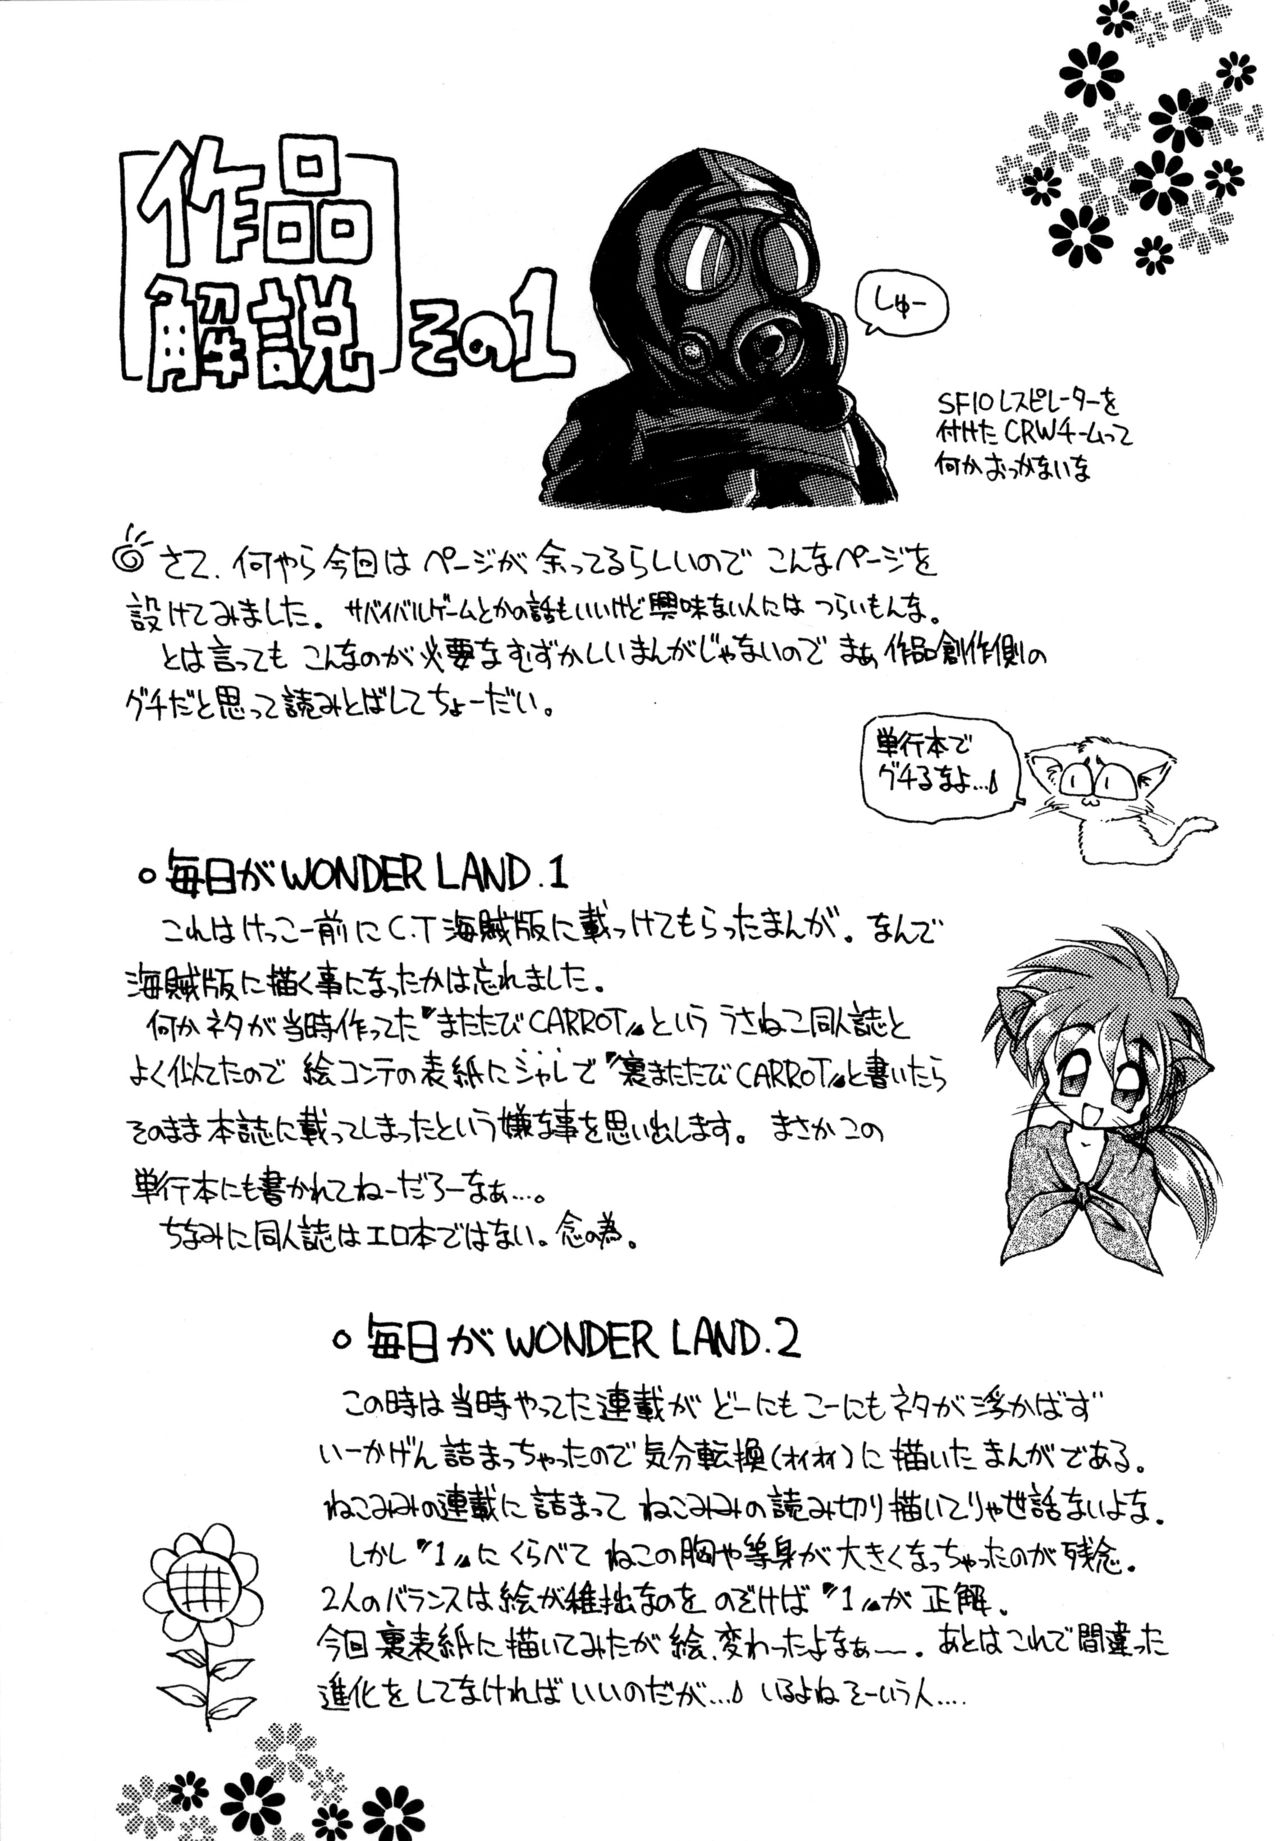 作品
解説 その1
しゅー
SF10レスピレーターを
付けたCRWチームって
何かおっかないな
さて、何やら今回はページが余ってるらしいのでこんなページを
設けてみました。サバイバルゲームとかの話もいいけど興味ない人にはつらいもんな。
とは言ってもこんなのが必要なむずかしいまんがじゃないのでまぁ作品創作側の
グチだと思って読みとばしてちょーだい。
単行本で
グチるなよ…
○毎日がWONDER LAND.1
これはけっこー前にC.T海賊版に載っけてもらったまんが。なんで
海賊版に描く事になったかは忘れました。
何かネタが当時作ってた『またたびCARROT』といううさねこ同人誌と
よく似てたので絵コンテの表紙にシャレで『裏またたびCARROT』と書いたら
そのまま本誌に載ってしまったという嫌な事を思い出します。まさかこの
単行本にも書かれてねーだろーなぁ…。
ちなみに同人誌はエロ本ではない。念の為。
○毎日がWONDER LAND.2
この時は当時やってた連載がどーにもこーにもネタが浮かばず
いーかげん詰まっちゃったので気分転換(オイオイ)に描いたまんがである。
ねこみみの連載に詰まってねこみみの読み切り描いてりゃ世話ないよな。
しかし『1』にくらべてねこの胸や等身が大きくなっちゃったのが残念。
2人のバランスは絵が稚拙なのをのぞけば『1』が正解。
今回裏表紙に描いてみたが絵、変わったよなぁー—。あとはこれで間違った
進化をしてなければいいのだが…いるよねそーいう人….